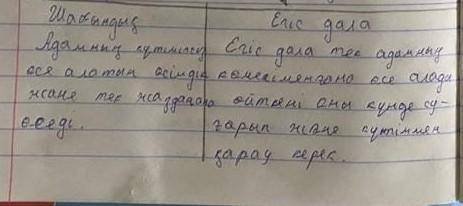 Шабындық
Адамның күтімінсіз
өсе алатын өсімдік
және тек жазда ғана
өседі.
Егіс дала
Егіс дала тек адамның
көмегімен ғана өсе алады
өйткені оны күнде су-
ғарып және күтіммен
қарау керек.